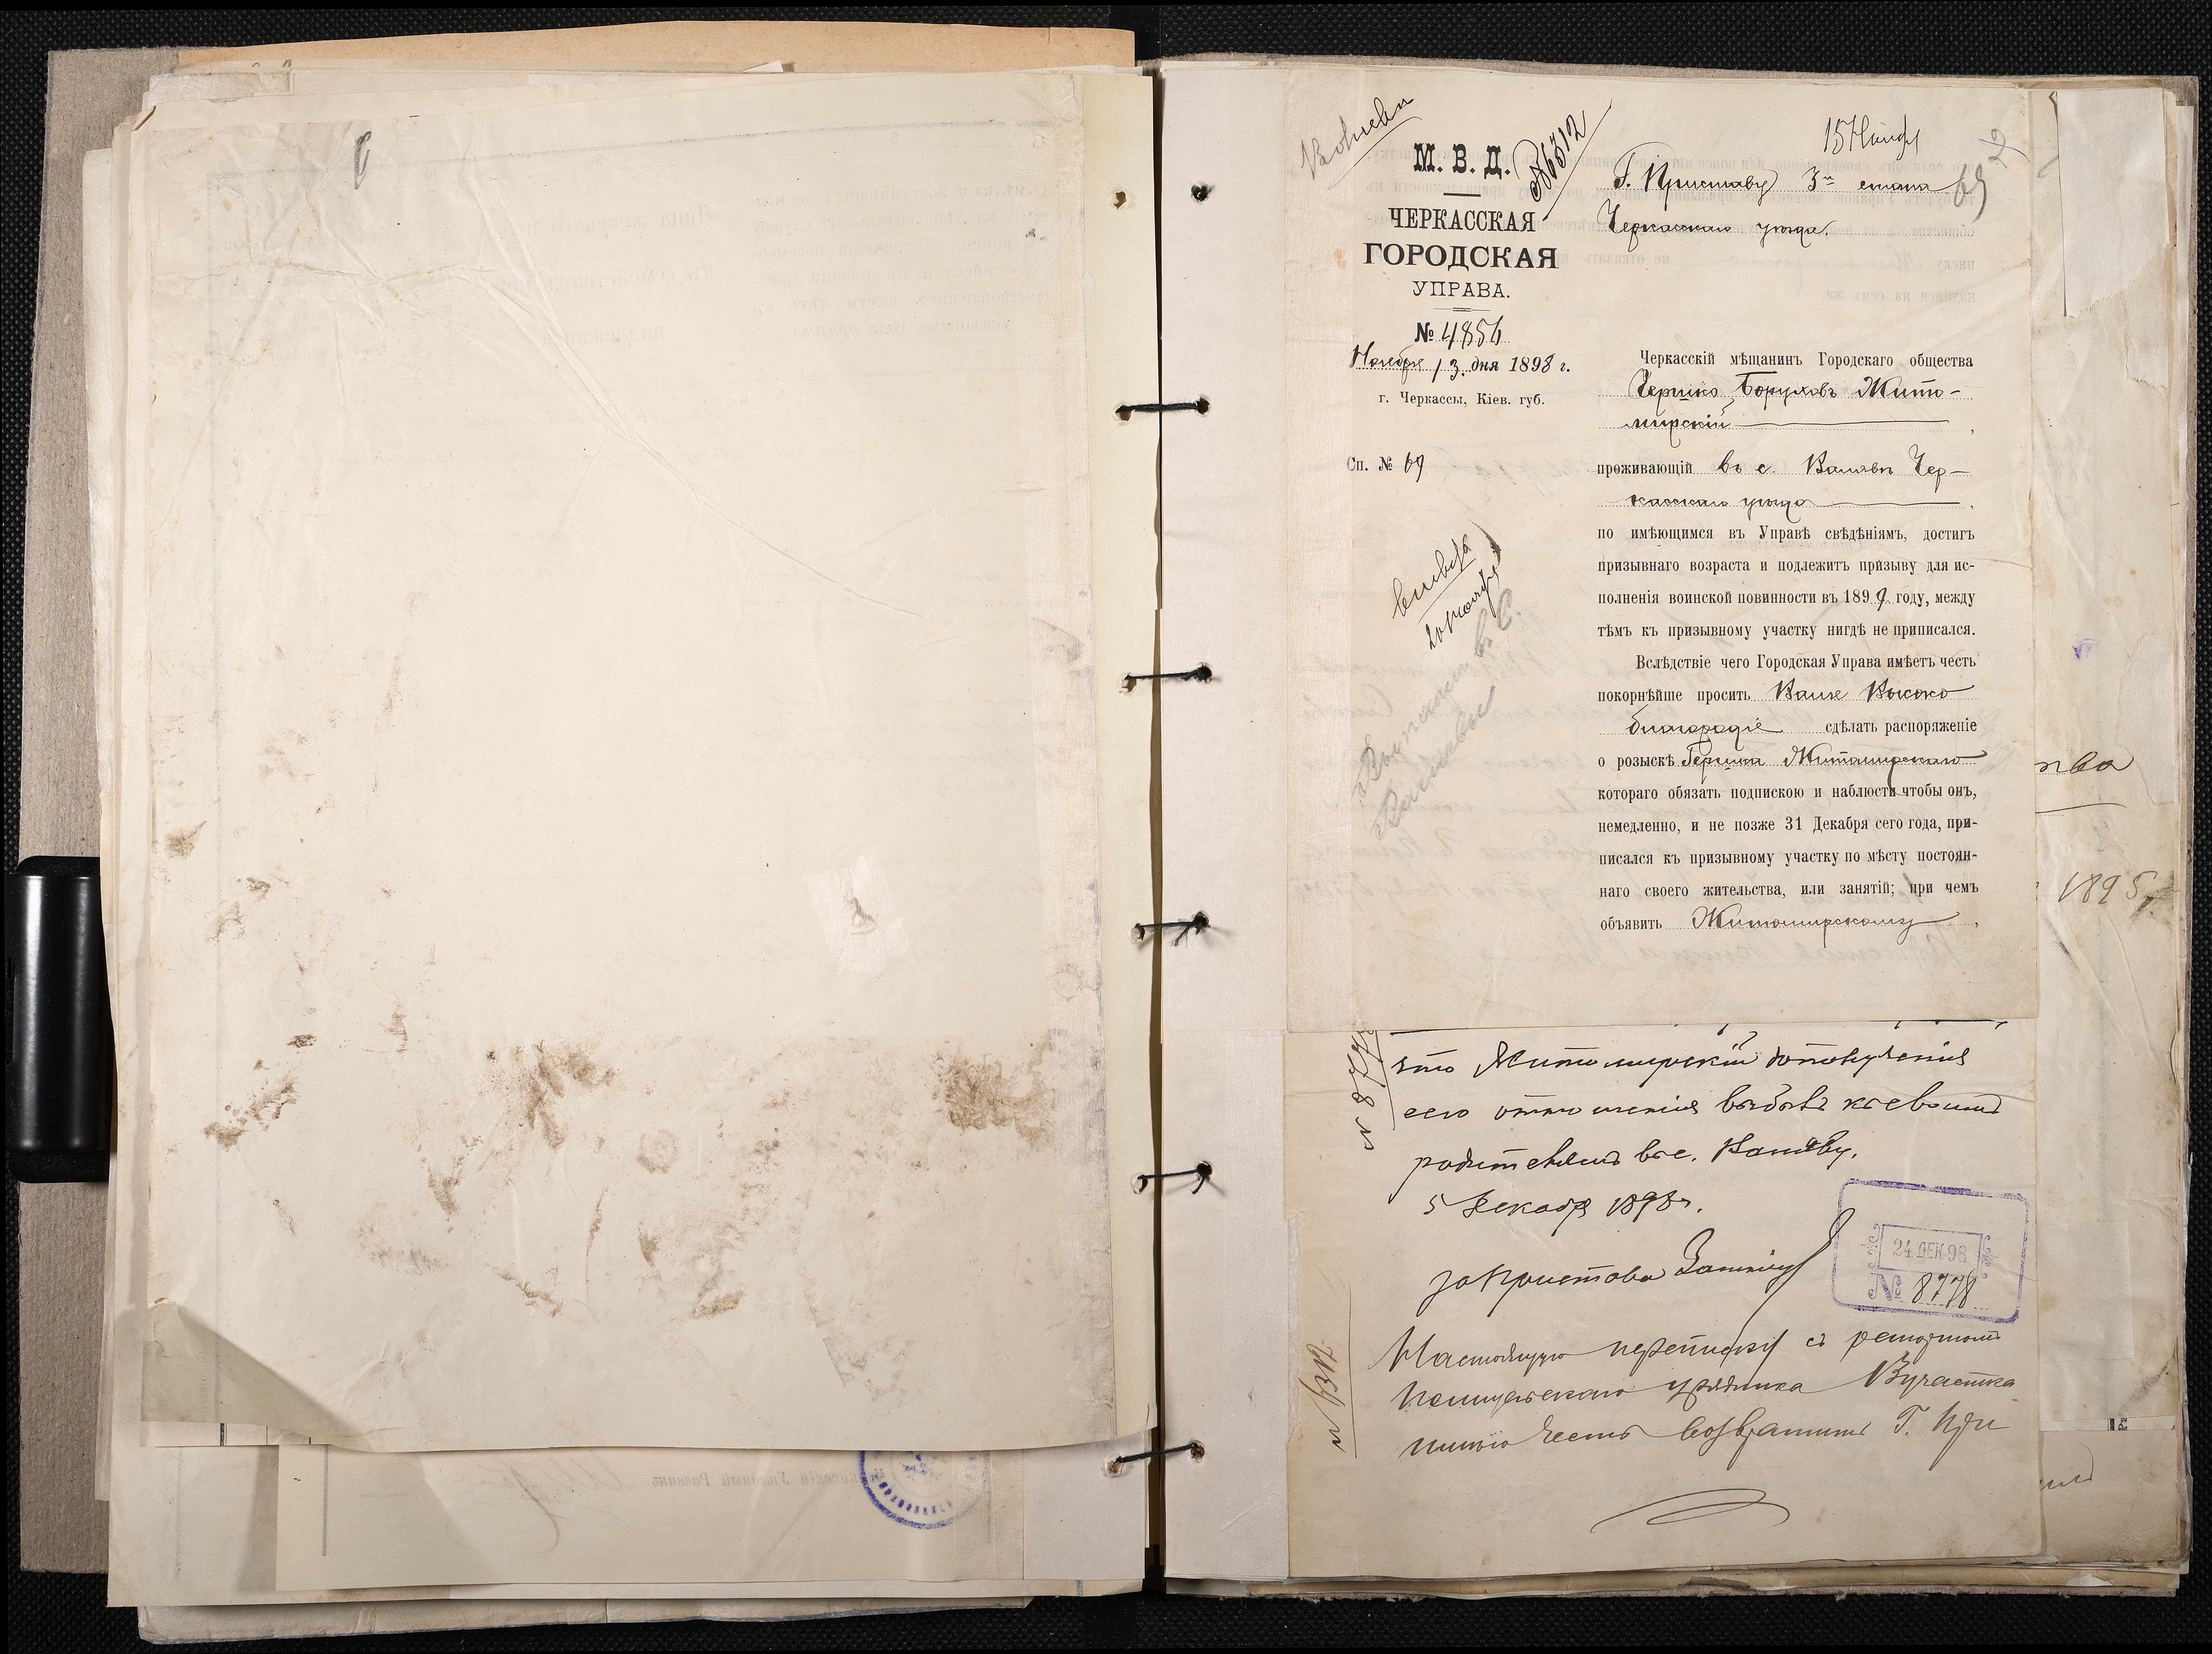 М. В. Д.
ЧЕРКАССКАЯ
ГОРОДСКАЯ
УПРАВА.
№ 4856
Ноября 13 дня 1898 г.
г. Черкассы, Кіев. губ.
Сп. № 69
№ 6312
15 Ноября
69
Г. Приставу 3го стана
Черкасскаго уѣзда.
Черкасскій мѣщанинъ Городскаго общества
Гершко Боруховъ Жито-
мирскій,
проживающій въ с. Валявѣ Чер-
касскаго уѣзда.
по имѣющимся въ Управѣ свѣдѣніямъ, достигъ
призывнаго возраста и подлежитъ призыву для ис-
полненія воинской повинности въ 1899 году, между
тѣмъ къ призывному участку нигдѣ не приписался.
Вслѣдствіе чего Городская Управа имѣетъ честь
покорнѣйше просить Ваше Высоко
благородіе сдѣлать распоряженіе
о розыскѣ Гершка Житомирскаго
котораго обязать подпискою и наблюсти чтобы онъ,
немедленно, и не позже 31 Декабря сего года, при-
писался къ призывному участку по мѣсту постоян-
наго своего жительства, или занятій; при чемъ
объявить Житомирскому,
20 Ноября
что Житомирскій до полученія
сего отношенія выбылъ къ своимъ
родителямъ въ с. Валяву.
5 Декабря 1898 г.
за Пристава
24 ДЕК 98
№ 8778
Настоящую переписку съ рапортомъ
Полицейскаго урядника В участка
имѣю честь возвратить Г. При
№ 6312
1895 г.